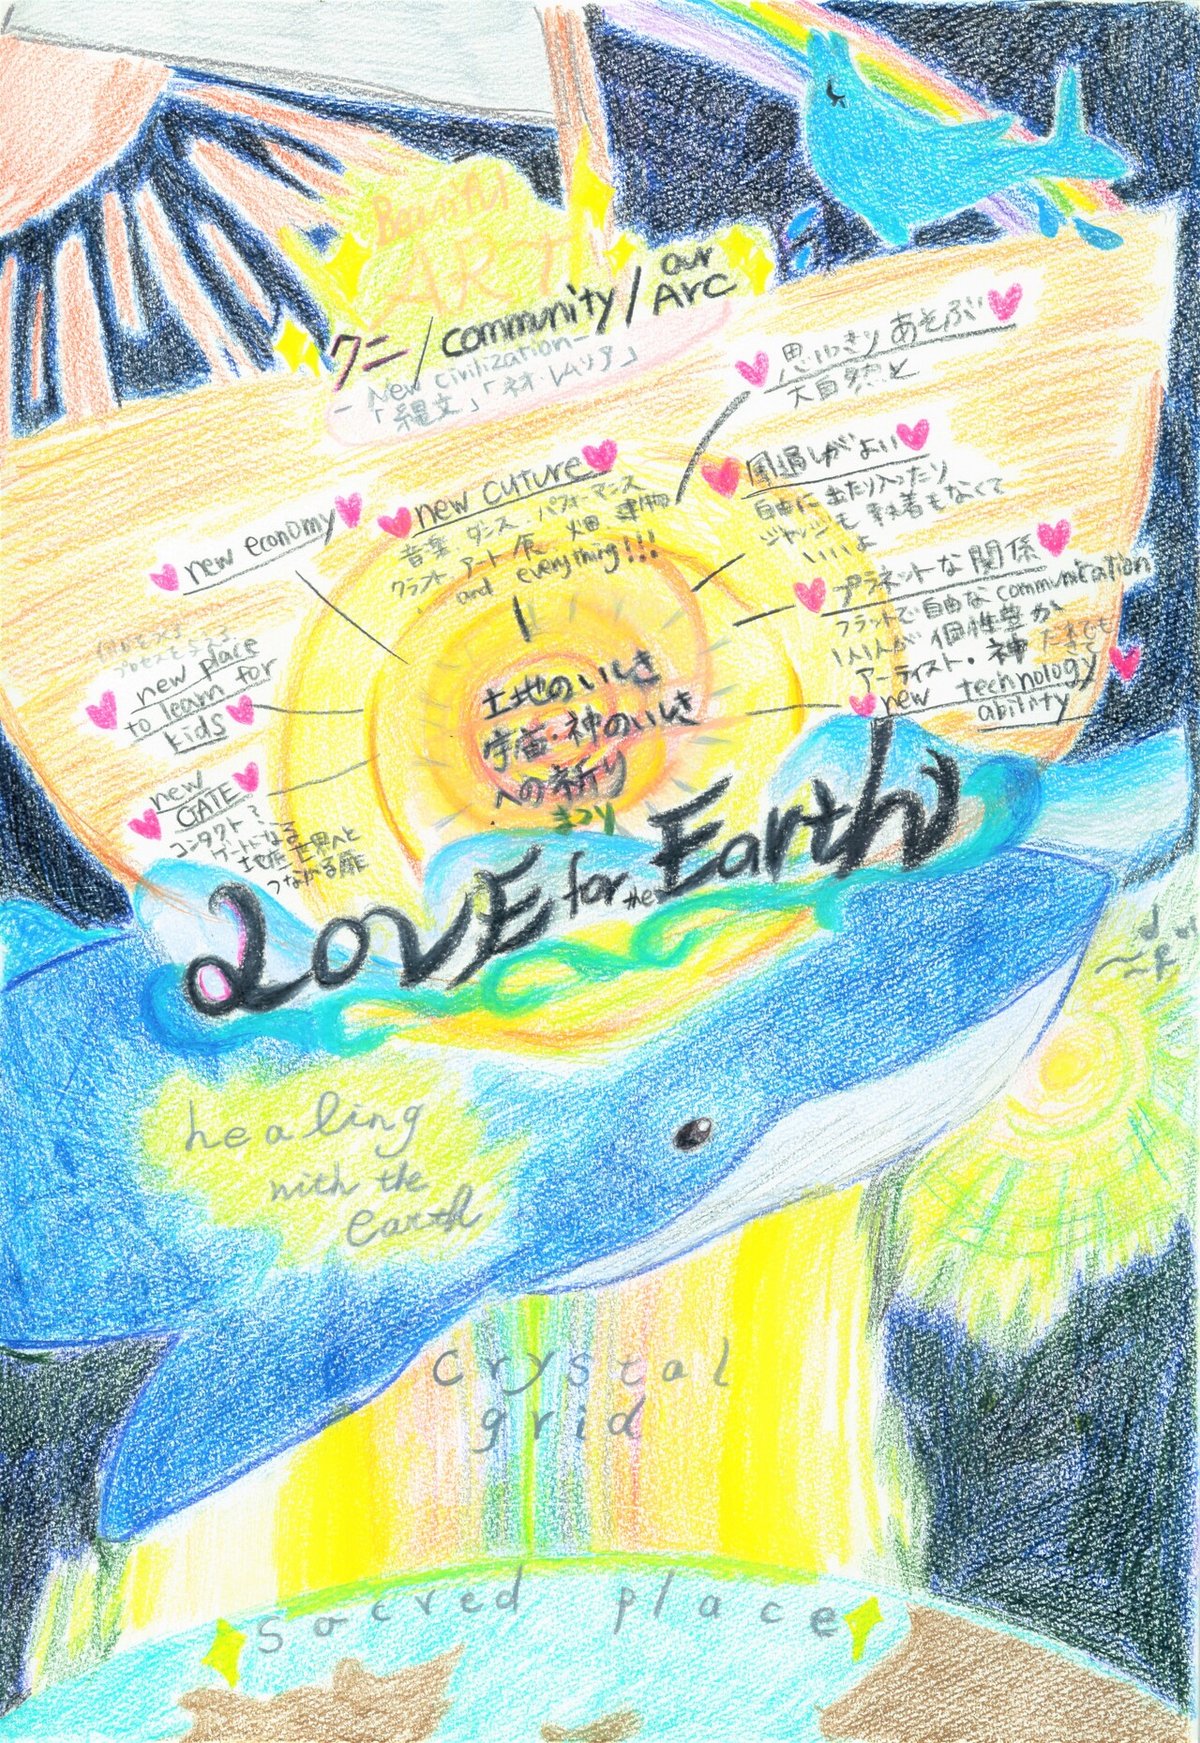 Beautiful
ART
クニ/community/our Arc
-New civilization-
「縄文」「ネオ・レムリア」
思いっきりあそぶ
大自然と
new cuture
音楽・ダンス・パフォーマンス
クラフト アート 衣 畑 建物
and everything!!!
new economy
風通しがよい
自由に出たり入ったり
ジャッジも執着もなくて
いいよ
プラネットな関係
フラットで自由なcommunication
1人1人が個性豊か
アーティスト・神
new technology
ability
プロセスを
new place
to learn for
kids
new
GATE
コンタクト
ゲートになる
世界へと
つながる扉
土地のいしき
宇宙・神のいしき
への祈り
まつり
LOVE for the Earth
healing
with the
earth
Crystal
grid
Sacred place